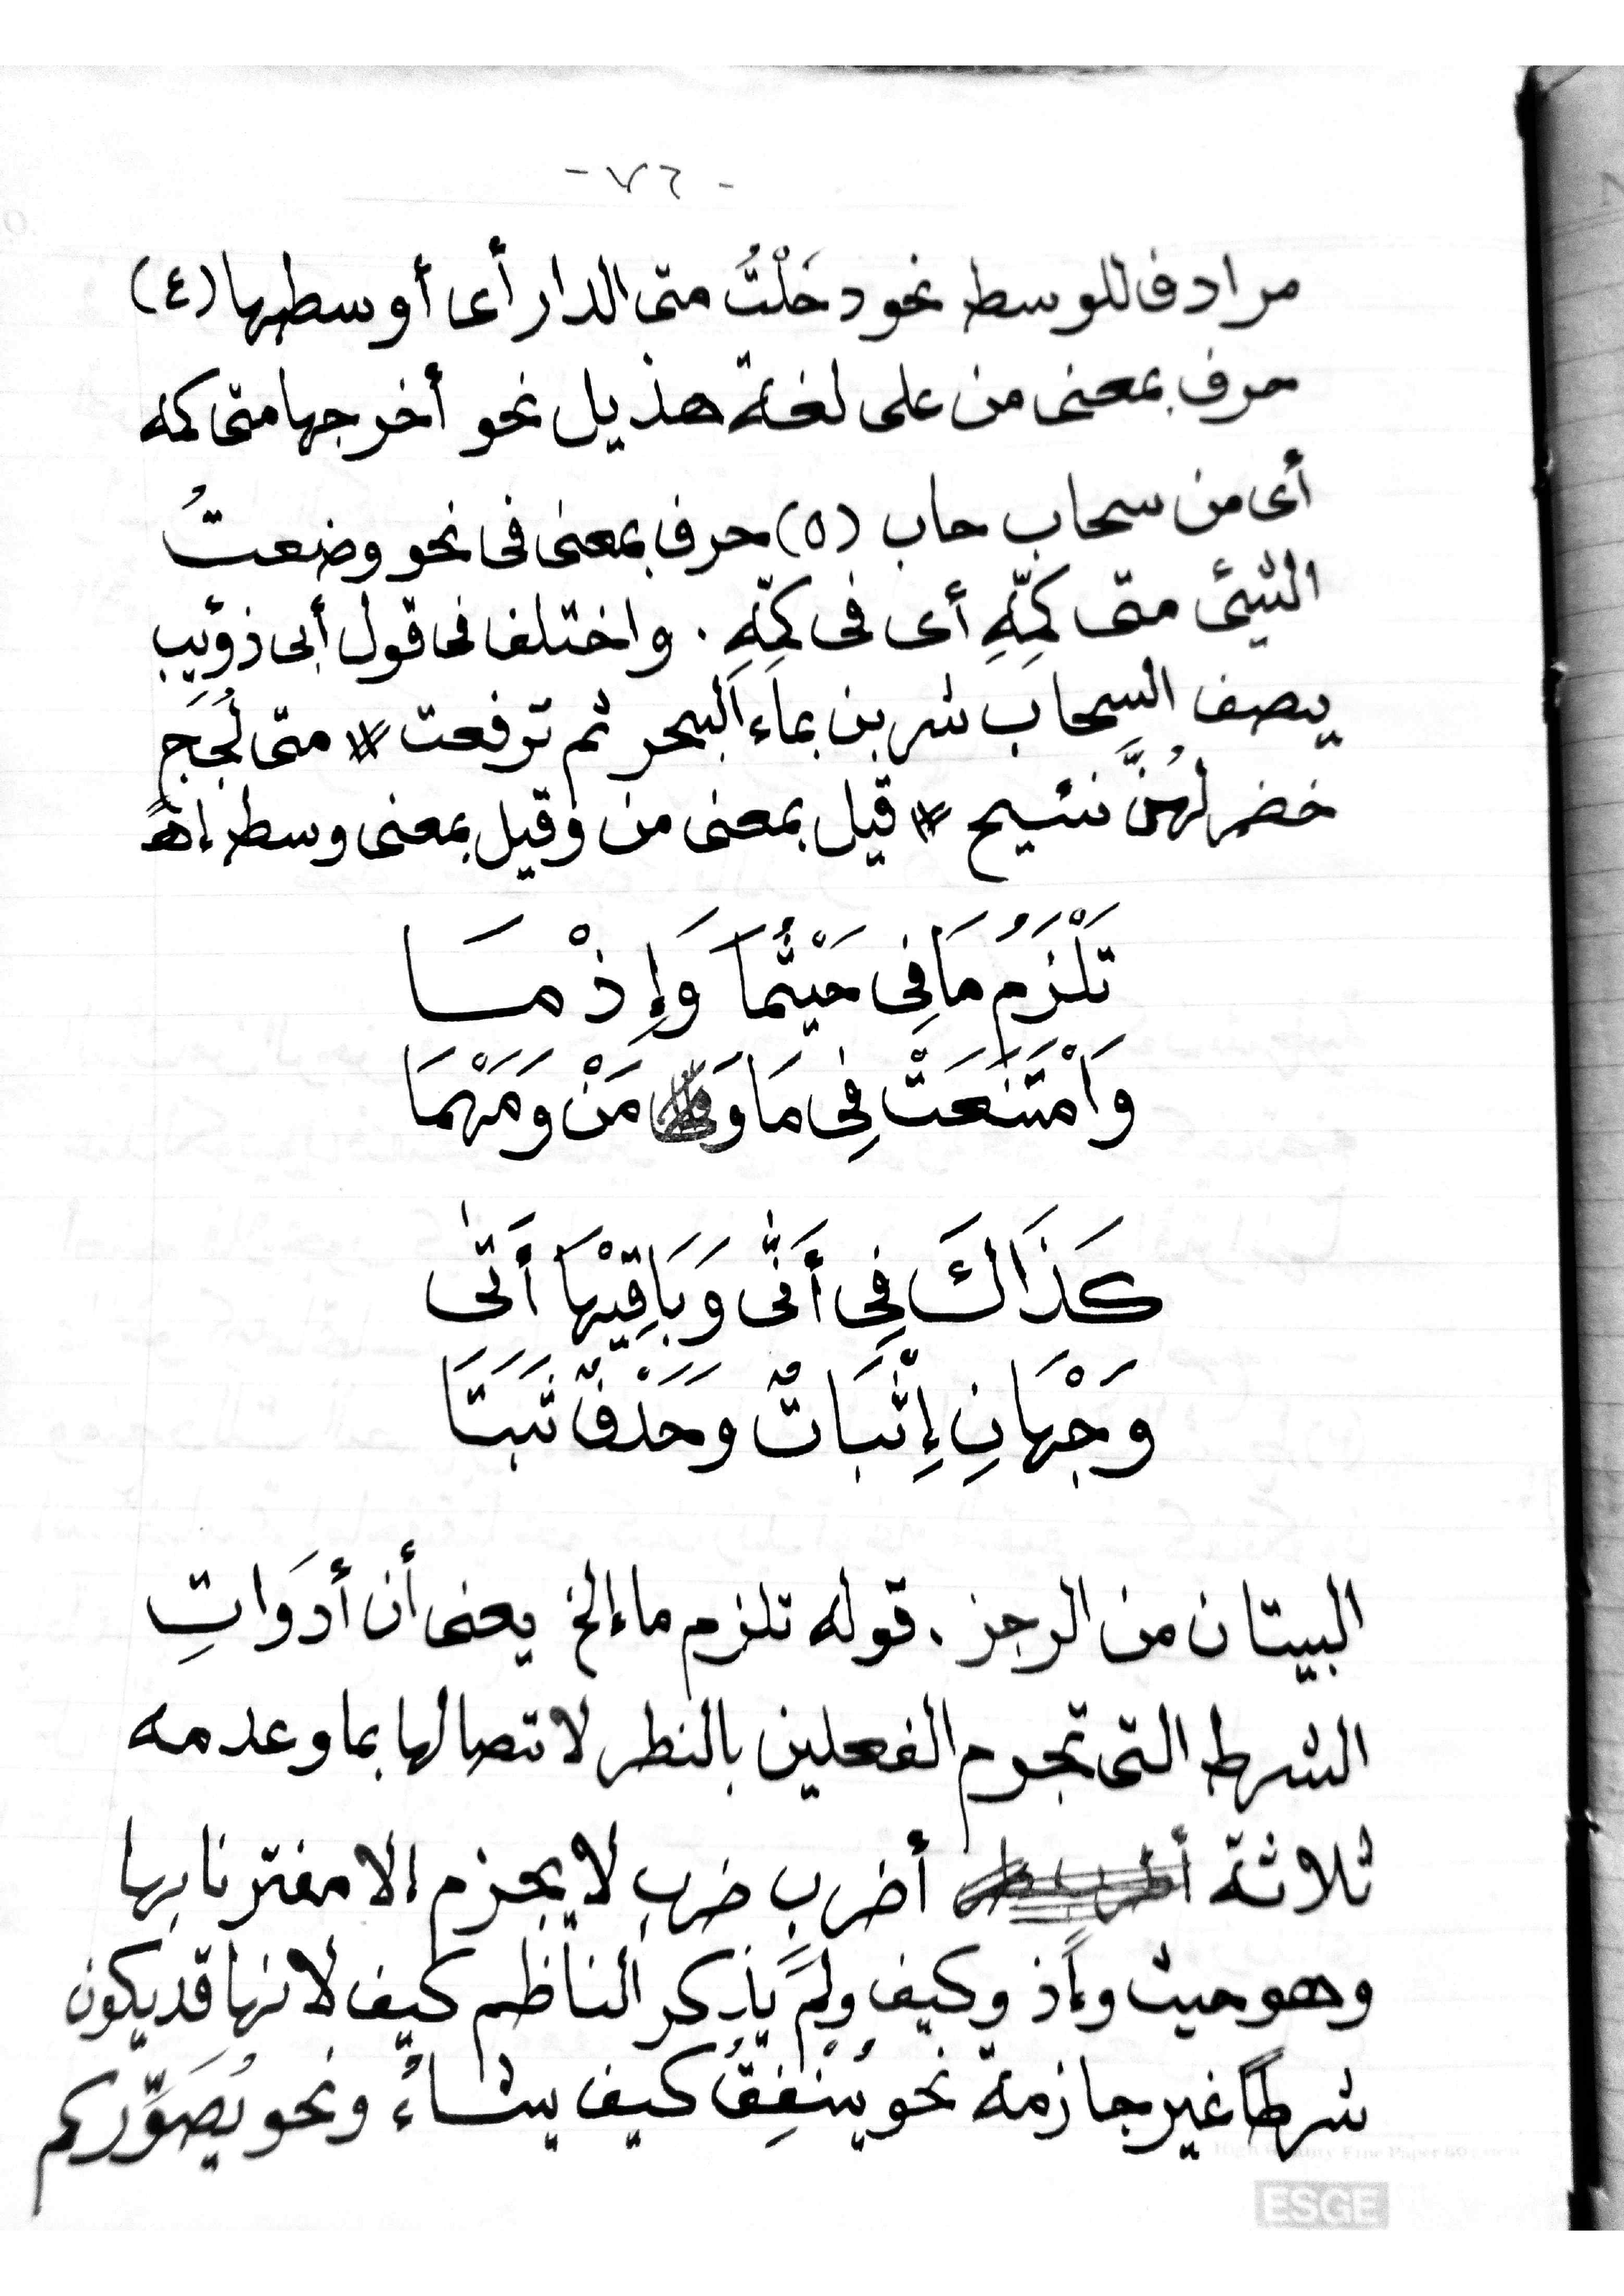 - ٧٦ -
مرادف للوسط نحو دخَلْتُ متى الدار أى أوسطها (٤)
حرف بمعنى من على لغة هذيل نحو أخرجها متى كمه
أى من سحاب حاب (٥) حرف بمعنى فى نحو وضعتُ
الشيئ متى كمِّهِ أى فى كمِّهِ . واختلف فى قول أبى ذؤيب
يصف السحاب شربن بماء البحر ثم ترفعت * متى لُجَجٍ
خضر لهُنَّ نئيج * قيل بمعنى من وقيل بمعنى وسط إهـ
تَلْزَمُ مَا فِى حَيْثُمَا وَإِذْ مَا
وَامْتَنَعَتْ فِى مَا وَ مَنْ وَمَهْمَا
كَذَاكَ فِى أَنَّى وَبَاقِيْهَا أَتَى
وَجْهَانِ إِثْبَاتٌ وَحَذْفٌ ثَبَتَا
البيتان من الرجز . قوله تلزم ما إلخ يعنى أن أدَوَاتِ
الشرط التى تجوم الفعلين بالنطر لاتصالها بما وعدمه
ثلاثة أضرب ضرب لا يجزم الا مفترنا بها
وهو حيث وإذ وكيف ولم يذكر الناظم كيف لانها قد يكون
شرطًا غير جازمة نحو يُنْفِقُ كيف يشاءُ ونحو يُصَوِّركم
ESGE